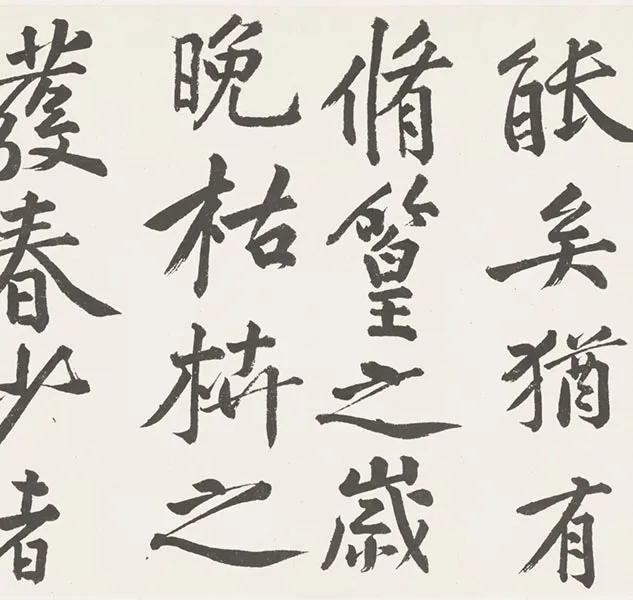 能矣猶有
脩篁之歲
晚枯枿之
發春少者